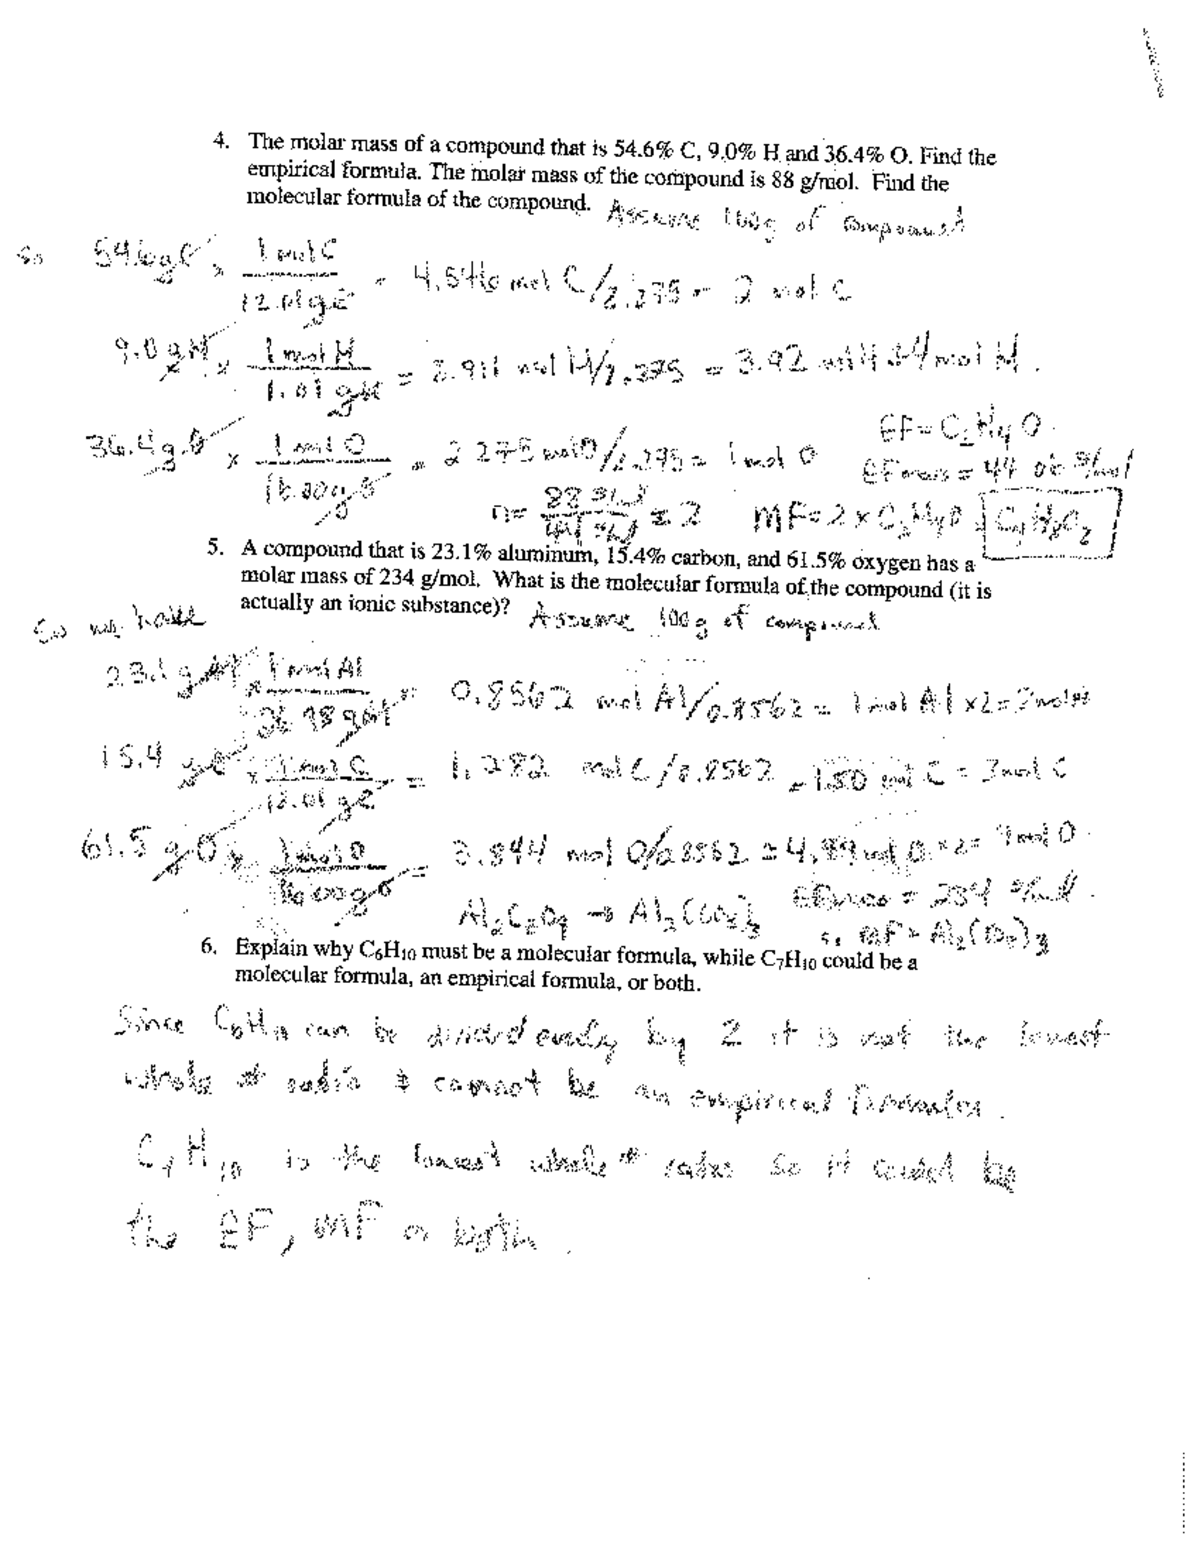 4. The molar mass of a compound that is 54.6% C, 9.0% H and 36.4% O. Find the
empirical formula. The molar mass of the compound is 88 g/mol. Find the
molecular formula of the compound. Assume 100g of compound
So 54.6 g C x 1 mol C / 12.01 g C = 4.546 mol C / 2.275 = 2 mol C
9.0 g H x 1 mol H / 1.01 g H = 8.911 mol H / 2.275 = 3.92 mol H ≈ 4 mol H
36.4 g O x 1 mol O / 16.00 g O = 2.275 mol O / 2.275 = 1 mol O
EF = C₂H₄O
EFmass = 44.06 g/mol
n = 88 g/mol / 44 g/mol = 2 MF = 2 x C₂H₄O = C₄H₈O₂
5. A compound that is 23.1% aluminum, 15.4% carbon, and 61.5% oxygen has a
molar mass of 234 g/mol. What is the molecular formula of the compound (it is
actually an ionic substance)? Assume 100g of compound
So we have
23.1 g Al x 1 mol Al / 26.98 g Al = 0.8562 mol Al / 0.8562 = 1 mol Al x 2 = 2 mol Al
15.4 g C x 1 mol C / 12.01 g C = 1.282 mol C / 0.8562 = 1.50 mol C = 3 mol C
61.5 g O x 1 mol O / 16.00 g O = 3.844 mol O / 0.8562 = 4.49 mol O x 2 = 9 mol O
Al₂C₃O₉ → Al₂(CO₃)₃ EFmass = 234 g/mol
MF = Al₂(CO₃)₃
6. Explain why C₆H₁₀ must be a molecular formula, while C₇H₁₀ could be a
molecular formula, an empirical formula, or both.
Since C₆H₁₀ can be divided evenly by 2 it is not the lowest
whole # ratio & cannot be an empirical formula.
C₇H₁₀ is the lowest whole # ratio so it could be
the EF, MF or both.